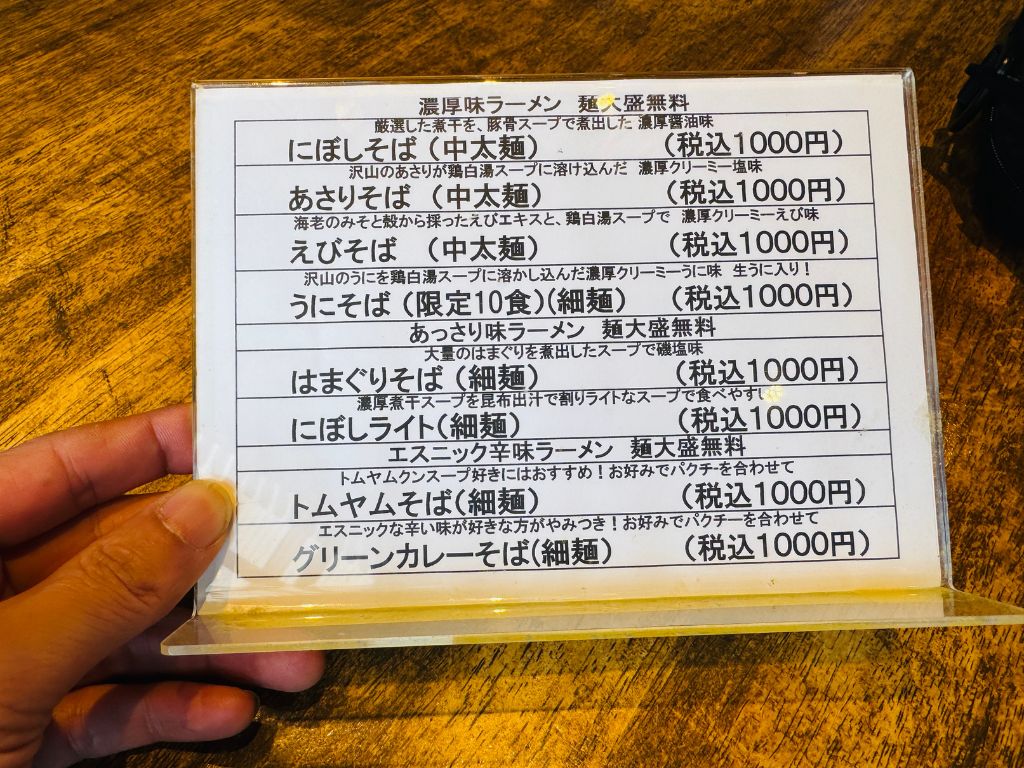 濃厚味ラーメン 麺大盛無料
厳選した煮干を、豚骨スープで煮出した 濃厚醤油味
にぼしそば（中太麺） （税込1000円）
沢山のあさりが鶏白湯スープに溶け込んだ 濃厚クリーミー塩味
あさりそば（中太麺） （税込1000円）
海老のみそと殻から採ったえびエキスと、鶏白湯スープで 濃厚クリーミーえび味
えびそば （中太麺） （税込1000円）
沢山のうにを鶏白湯スープに溶かし込んだ濃厚クリーミーうに味 生うに入り！
うにそば（限定10食）（細麺） （税込1000円）
あっさり味ラーメン 麺大盛無料
大量のはまぐりを煮出したスープで磯塩味
はまぐりそば（細麺） （税込1000円）
濃厚煮干スープを昆布出汁で割りライトなスープで食べやすい
にぼしライト（細麺） （税込1000円）
エスニック辛味ラーメン 麺大盛無料
トムヤムクンスープ好きにはおすすめ！お好みでパクチを合わせて
トムヤムそば（細麺） （税込1000円）
エスニックな辛い味が好きな方がやみつき！お好みでパクチーを合わせて
グリーンカレーそば（細麺） （税込1000円）